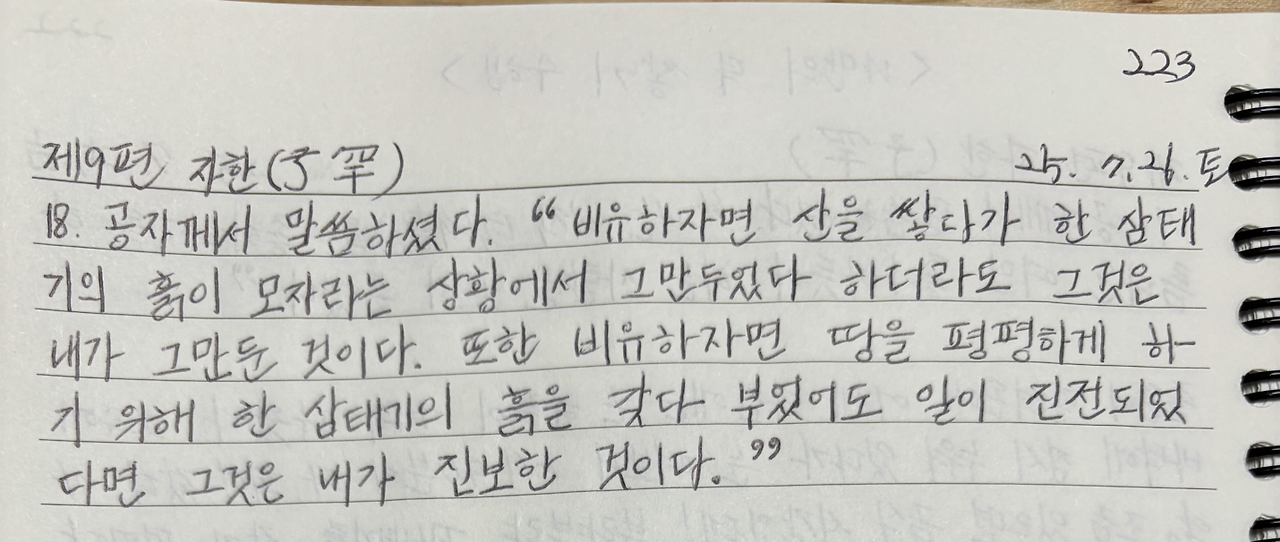 223
제9편 자한(子罕) 25. 7. 26. 토
18. 공자께서 말씀하셨다. “비유하자면 산을 쌓다가 한 삼태
기의 흙이 모자라는 상황에서 그만두었다 하더라도 그것은
내가 그만둔 것이다. 또한 비유하자면 땅을 평평하게 하
기 위해 한 삼태기의 흙을 갖다 부었어도 일이 진전되었
다면 그것은 내가 진보한 것이다.”